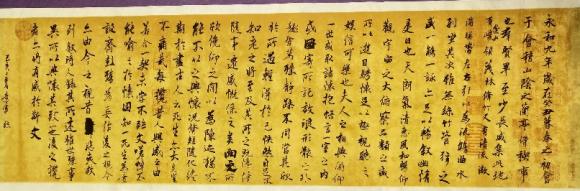 永和九年歲在癸丑暮春之初會
于會稽山陰之蘭亭脩稧事
也群賢畢至少長咸集此地
有崇領茂林脩竹又有清流激
湍暎帶左右引以為流觴曲水
列坐其次雖無絲竹管弦之
盛一觴一詠亦足以暢敘幽情
是日也天朗氣清惠風和暢仰
觀宇宙之大俯察品類之盛
所以遊目騁懷足以極視聽之
娛信可樂也夫人之相與俯仰
一世或取諸懷抱悟言一室之內
或因寄所託放浪形骸之外雖
趣舍萬殊靜躁不同當其欣
於所遇暫得於己快然自足不
知老之將至及其所之既惓情
隨事遷感慨係之矣向之所
欣俛仰之間以為陳迹猶不
能不以之興懷況脩短隨化終
期於盡古人云死生亦大矣豈
不痛哉每攬昔人興感之由
若合一契未嘗不臨文嗟悼不
能喻之於懷固知一死生為虛
誕齊彭殤為妄作後之視今
亦由今之視昔悲夫故
列敘時人錄其所述雖世殊事
異所以興懷其致一也後之攬
者亦將有感於斯文